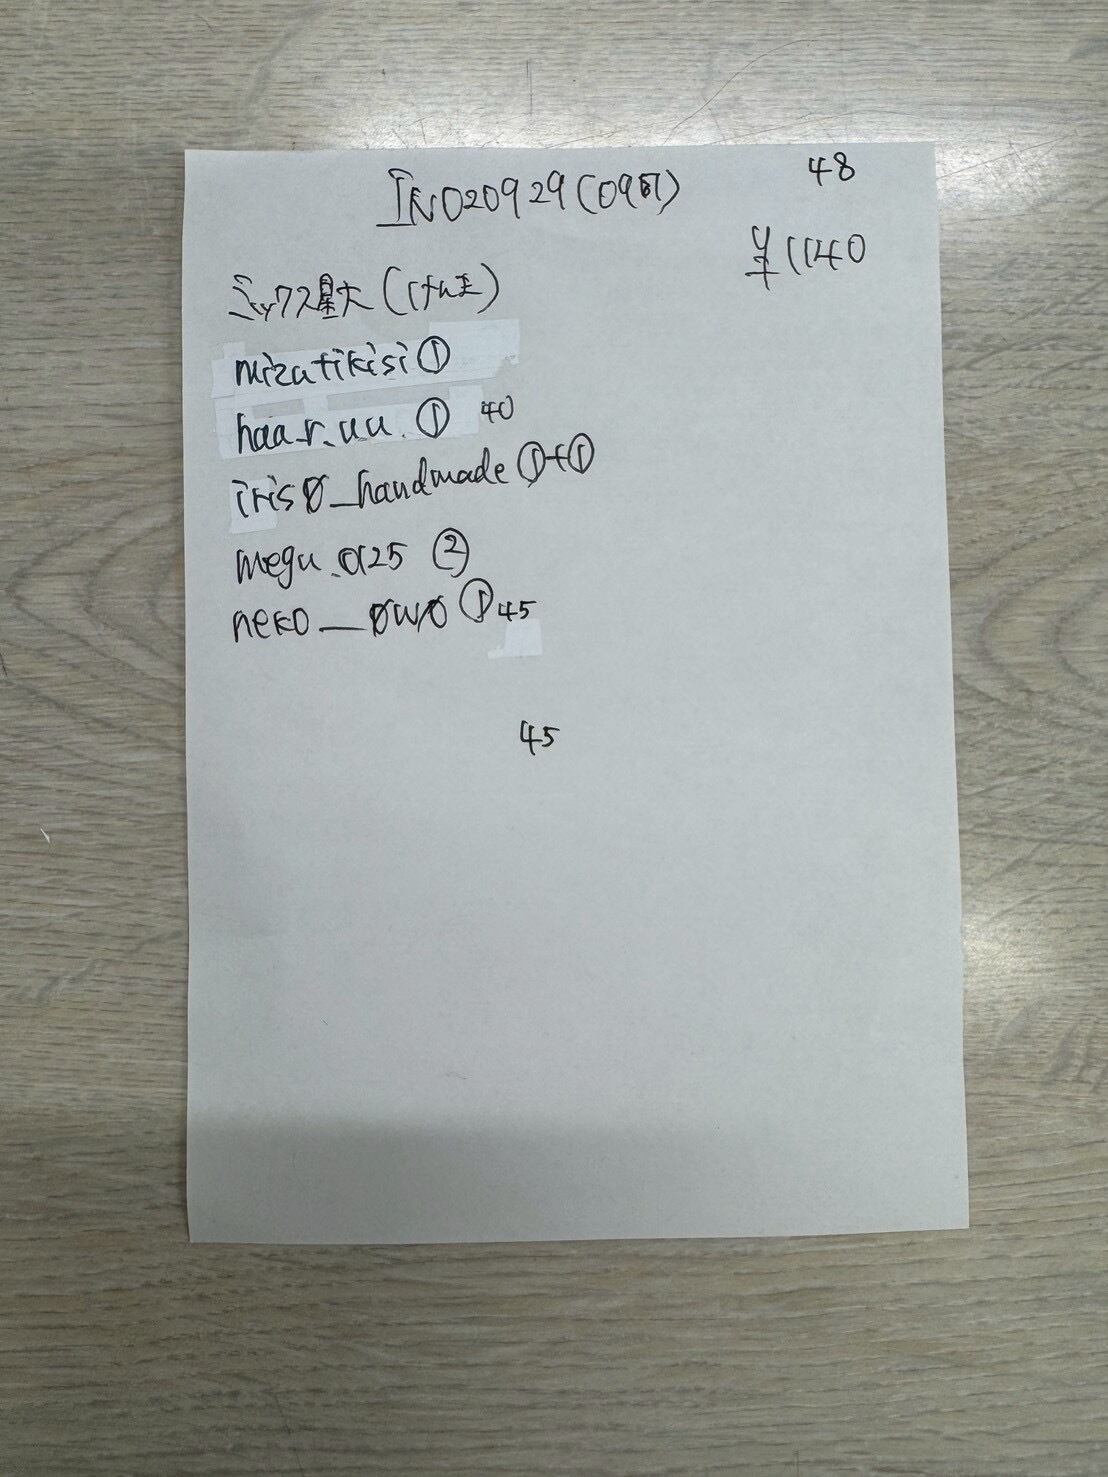 INO20929(09切)
48
¥1140
ミックス星大(けんま)
mizutikisi①
haa_r.uu.① 40
iris0_handmade①+①
megu.0125②
neko__0w0① 45
45